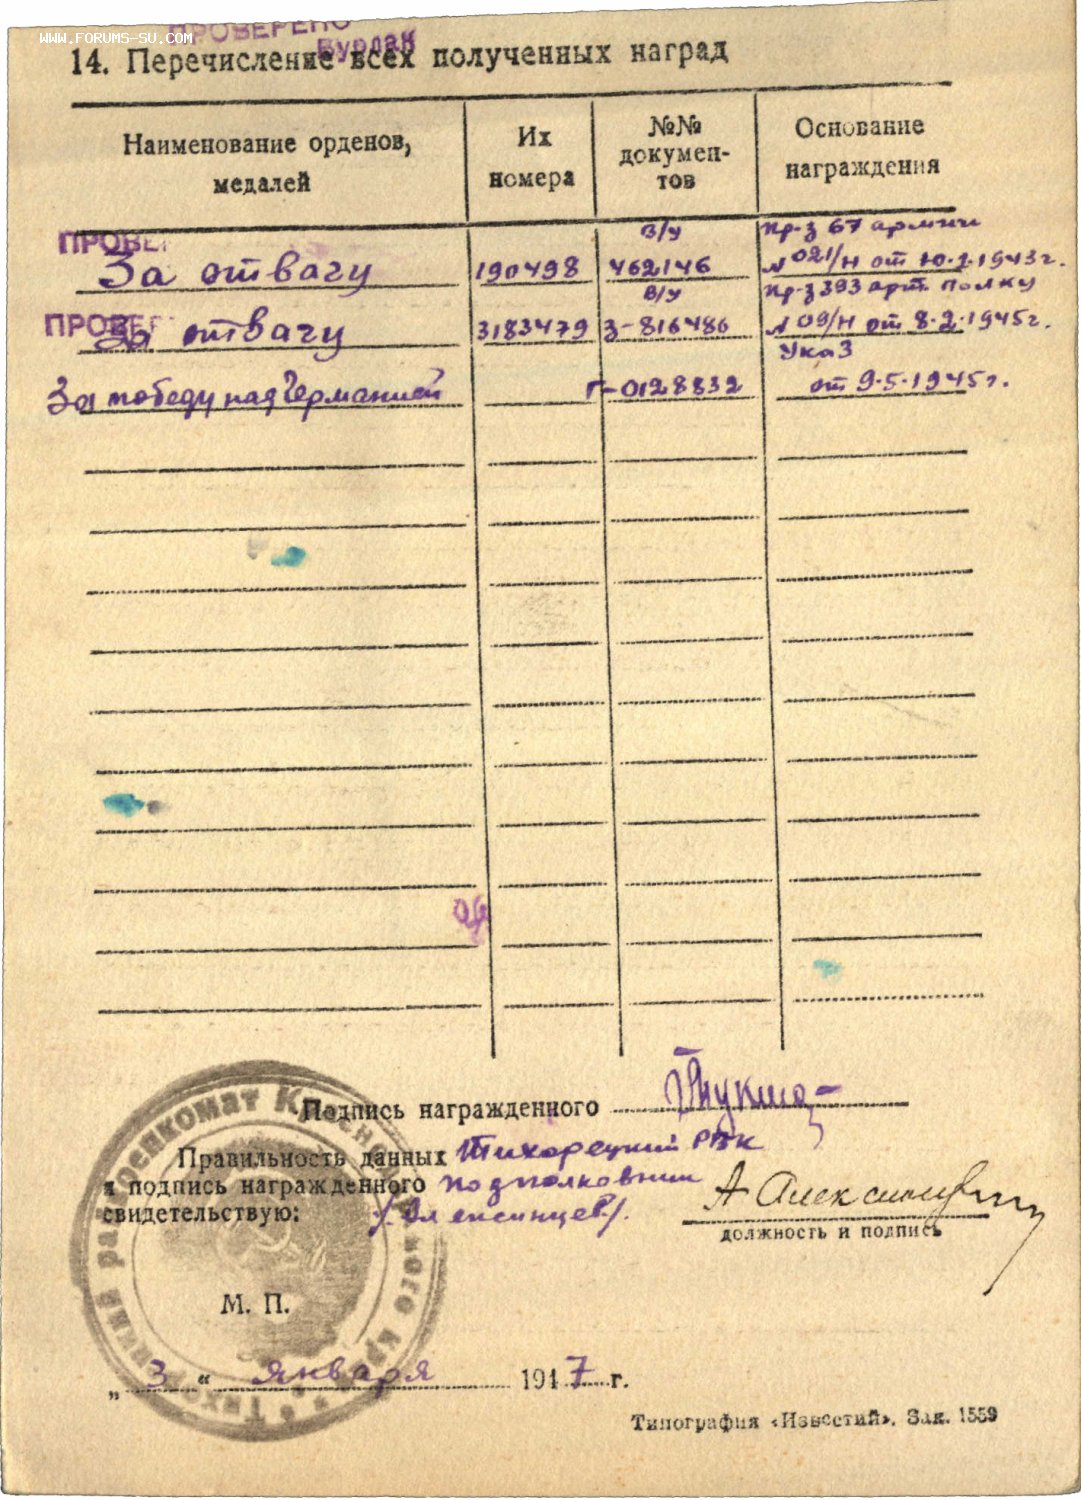 WWW.FORUMS-SU.COM
ПРОВЕРЕНО
Бурлак
14. Перечисление всех полученных наград
Наименование орденов, медалей
Их номера
№№ докумен-тов
Основание награждения
ПРОВЕР
За отвагу 190498 в/у 462146 Пр-з 67 армии
№ 021/н от 10.2.1943г.
ПРОВЕР
За отвагу 3183479 в/у З-816486 Пр-з 393 арт. полку
№ 09/н от 8.2.1945г.
За победу над Германией Г-0128832 Указ
от 9.5.1945г.
Подпись награжденного
Правильность данных Тихорецкий РВК
и подпись награжденного подполковник
свидетельствую: /Алексинцев/.
А Алексинцев
должность и подпись
М. П.
„ 3 “ января 1947 г.
Типография «Известий». Зак. 1559